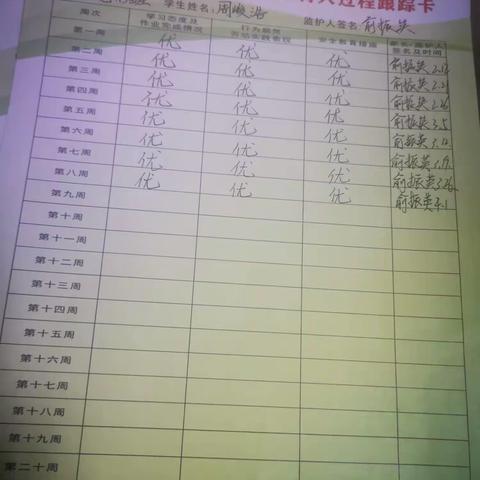 人过程跟踪卡
班 学生姓名:周峻浩 监护人签名:俞振英
周次 学习态度及作业完成情况 行为规范 劳动实践表现 安全教育措施 家长、监护人签名及时间
第一周 优 优 优 俞振英 2.13
第二周 优 优 优 俞振英 2.21
第三周 优 优 优 俞振英 2.26
第四周 优 优 优 俞振英 3.5
第五周 优 优 优 俞振英 3.12
第六周 优 优 优 俞振英 3.19
第七周 优 优 优 俞振英 3.26
第八周 优 优 优 俞振英 4.1
第九周
第十周
第十一周
第十二周
第十三周
第十四周
第十五周
第十六周
第十七周
第十八周
第十九周
第二十周